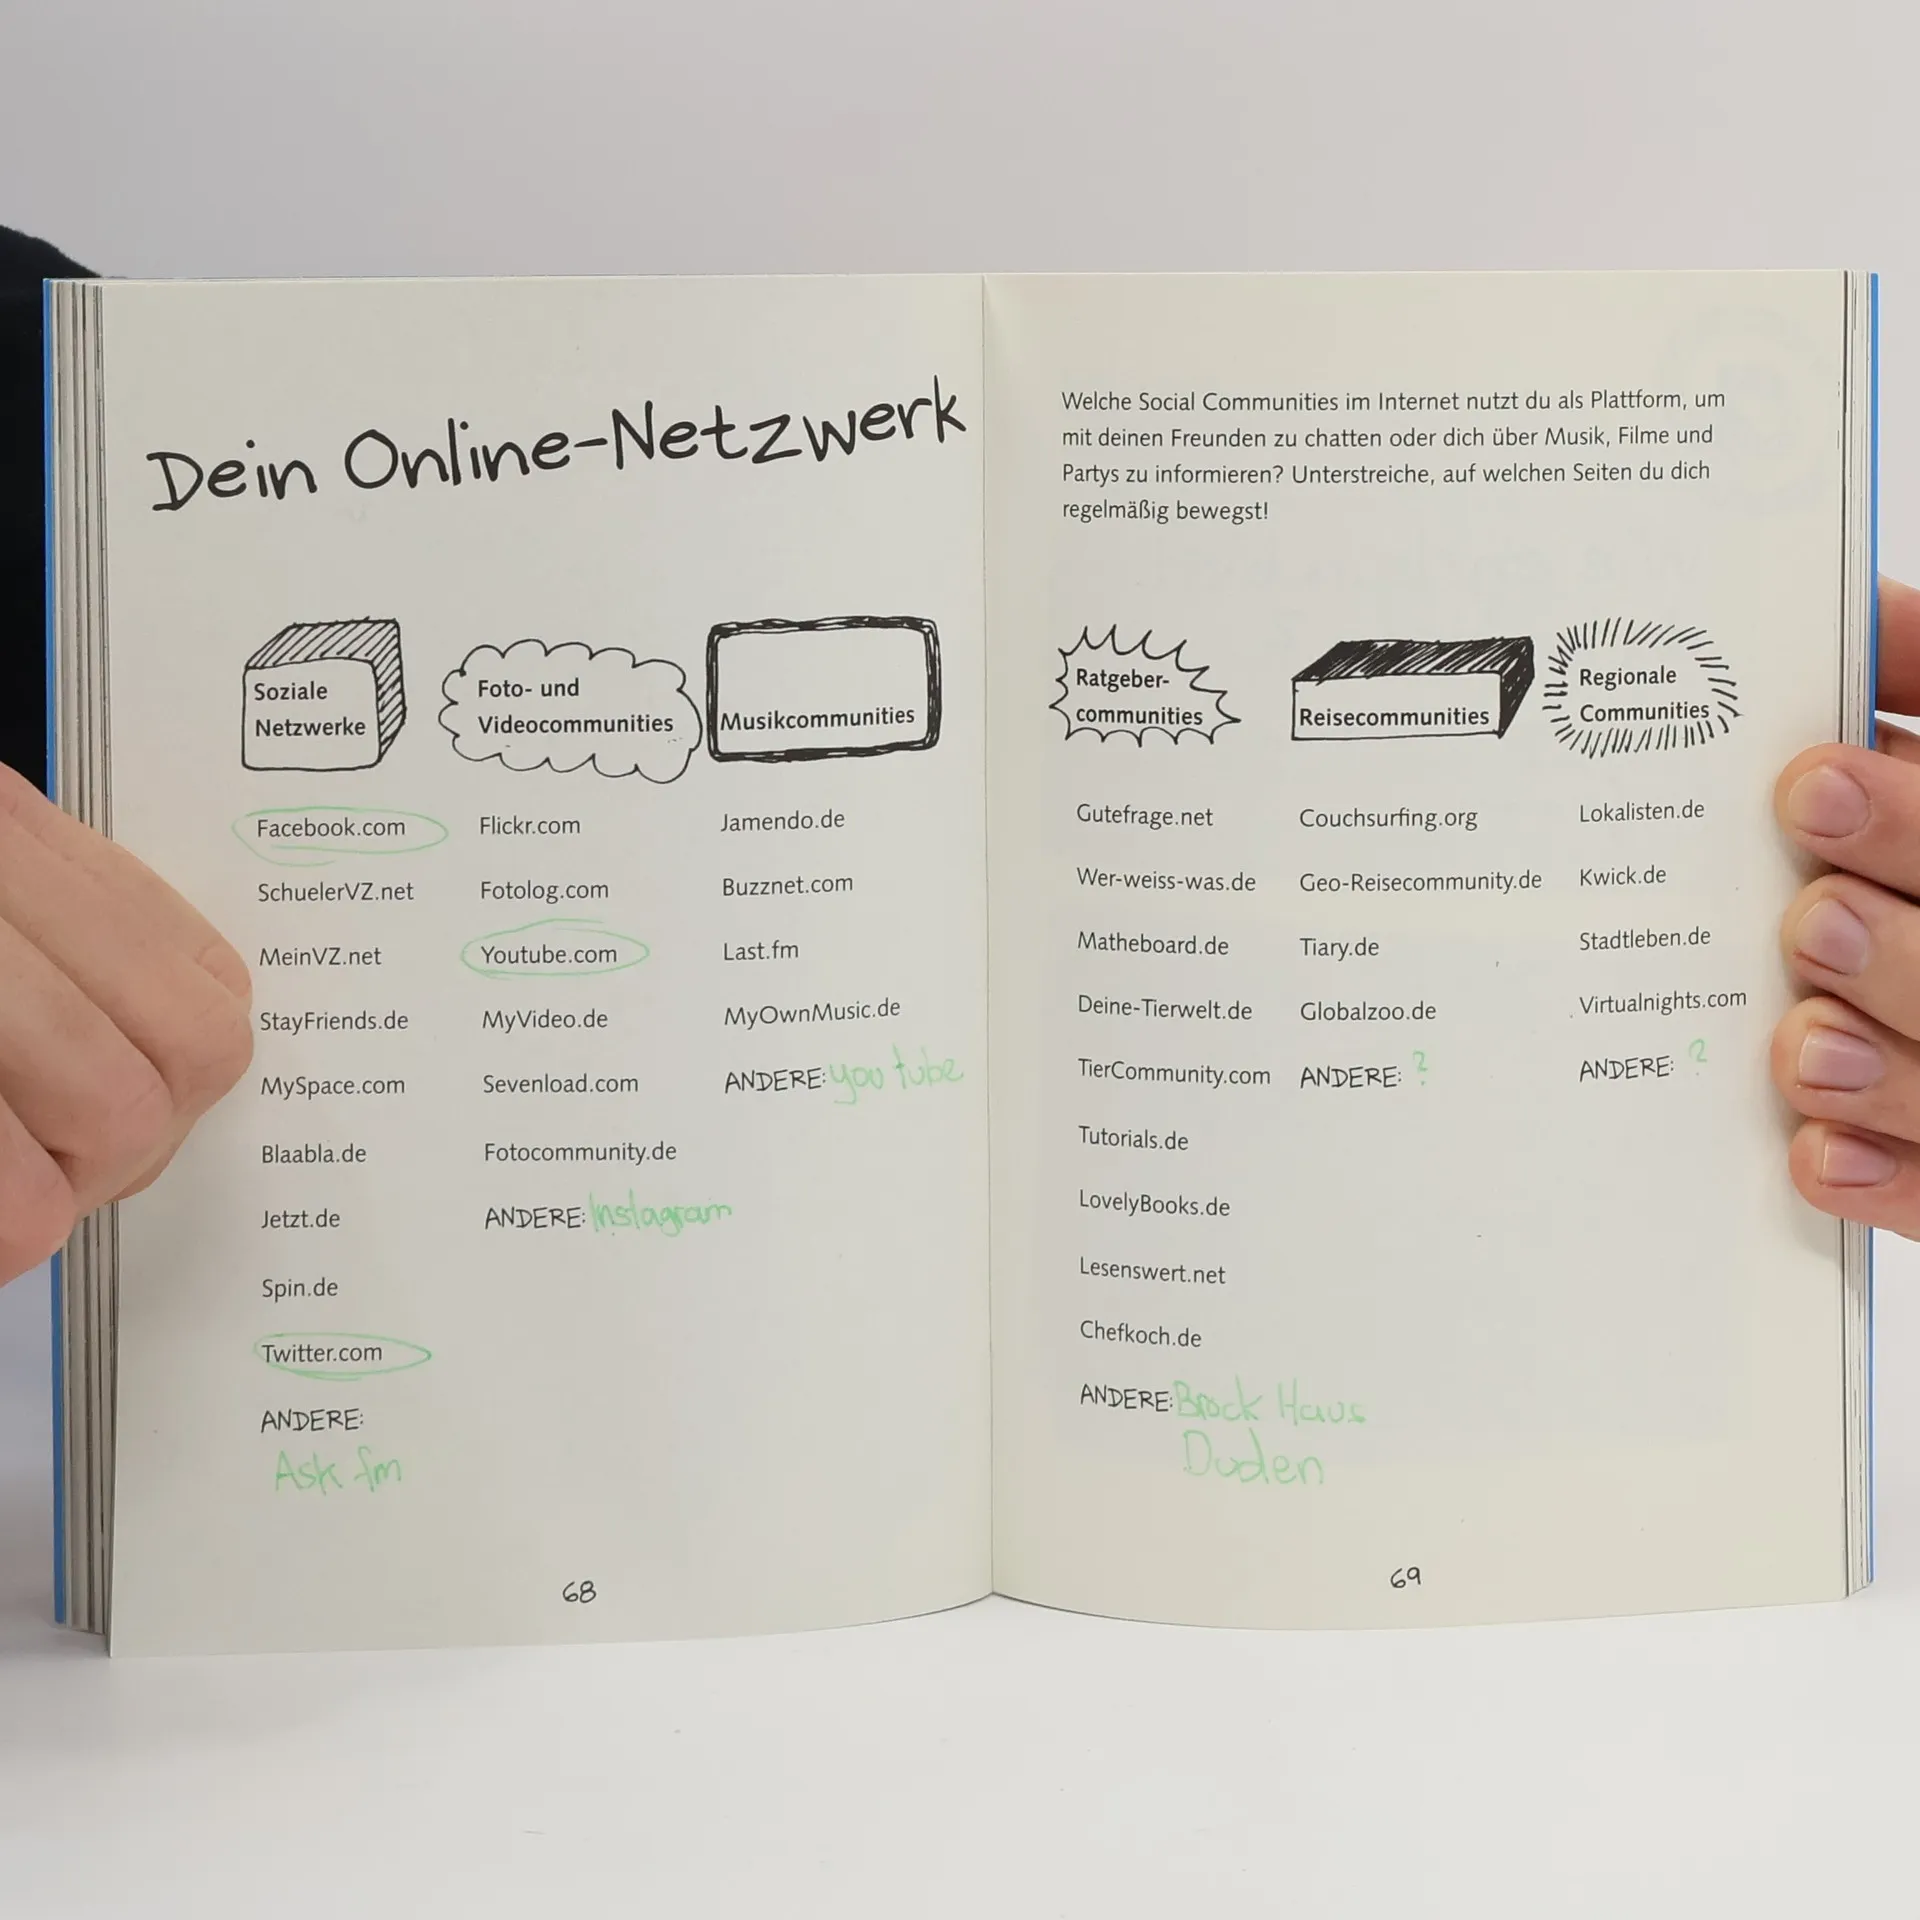 Dein Online-Netzwerk
Soziale
Netzwerke
Facebook.com
SchuelerVZ.net
MeinVZ.net
StayFriends.de
MySpace.com
Blaabla.de
Jetzt.de
Spin.de
Twitter.com
ANDERE:
Ask fm
Foto- und
Videocommunities
Flickr.com
Fotolog.com
Youtube.com
MyVideo.de
Sevenload.com
Fotocommunity.de
ANDERE: Instagram
Musikcommunities
Jamendo.de
Buzznet.com
Last.fm
MyOwnMusic.de
ANDERE: you tube
68
Welche Social Communities im Internet nutzt du als Plattform, um
mit deinen Freunden zu chatten oder dich über Musik, Filme und
Partys zu informieren? Unterstreiche, auf welchen Seiten du dich
regelmäßig bewegst!
Ratgeber-
communities
Gutefrage.net
Wer-weiss-was.de
Matheboard.de
Deine-Tierwelt.de
TierCommunity.com
Tutorials.de
LovelyBooks.de
Lesenswert.net
Chefkoch.de
ANDERE: Brock Haus
Duden
Reisecommunities
Couchsurfing.org
Geo-Reisecommunity.de
Tiary.de
Globalzoo.de
ANDERE: ?
Regionale
Communities
Lokalisten.de
Kwick.de
Stadtleben.de
Virtualnights.com
ANDERE: ?
69